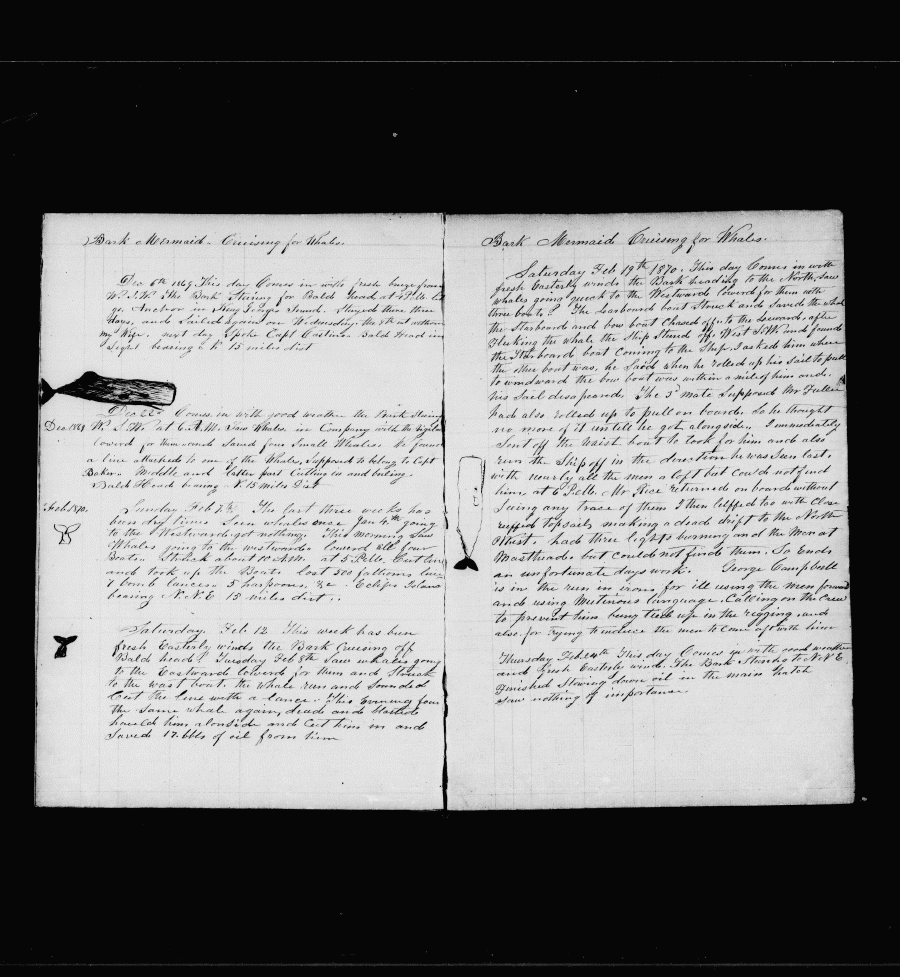 Bark Mermaid. Cruising for Whales.
Dec 6th 1869 This day Comes in with fresh breeze from
W.S.W. The Bark Steering for Bald head at 8 P.M.
Anchor in King Georges Sound. Stayed there three
days, and Sailed again on Wednesday, the 8th
my Wife. next day Spoke Capt Bald Head in
Sight bearing N 15 miles dist
Dec 22d Comes in with good weather the Bark Steering
Dec 1869 W.S.W. at 6 A.M. Saw Whales in Company with the
lowered for them and Saved four Small Whales. We found
a line attached to one of the Whales, Supposed to belong to Capt
Baker. Middle and latter part Cutting in and boiling.
Bald Head bearing N. 15 miles Dist
Feb 1870. Sunday Feb 7th The last three weeks has
been dry times Seen whales once Jan 4th going
to the Westward got nothing. This morning Saw
Whales going to the westward. lowered all four
Boats. Struck about 10 A.M. at 5 P.M. Cut line
and took up the Boats lost 300 fathoms line
7 bomb lances. 5 harpoons, &c. Eclips Island
bearing N.N.E 15 miles dist..
Saturday, Feb 12 This week has been
fresh Easterly winds the Bark Cruising off
Bald head. Tuesday Feb 8th Saw whales going
to the Eastward lowerd for them and Struck
to the wast boat the whale run and Sounded
Cut the line with a lance. This Evening found
the Same whale again, dead and
hauled him alonside and Cut him in and
Saved 17. bbls of oil from him
Bark Mermaid Cruising for Whales.
Saturday Feb 19th 1870. This day Comes in with
fresh Easterly winds the Bark heading to the North, Saw
whales going quick to the Westward lowerd for them with
three boats. The Larboard boat Struck and Saved the whale
the Starboard and bow boat Chased off to the Leeward, after
Fluking the whale the Ship Stood off West S.W. and found
the Starboard boat Coming to the Ship. I asked him where
the other boat was, he Said when he rolled up his Sail to pull
to windward the bow boat was within a mile of him and
his Sail disapeared. The 3 mate Supposed Mr Fuller
had also rolled up to pull on board. So he thought
no more of it untill he got alongside. I immediately
Sent off the Waist boat to look for him and also
run the Ship off in the direction he was Seen last.
with nearly all the men a loft but Could not find
him, at 6 P.M. Mr Rice returned on board without
Seeing any trace of them I then luffed too with Close
reeffed topsails, making a dead drift to the North
West. had three lights burning and the Men at
Masthead. but Could not finde them. So Ends
an unfortunate days work. George Campbell
is in the run in irons, for ill using the men forward
and using Mutinous language. Calling on the Crew
to prevent him being tied up in the rigging. and
also for trying to induce the men to Come aft with him
Thursday Feb 24th This day Comes in with good weather
and fresh Easterly winds. The Bark Stands to N.N.E
Finished Stowing down oil in the main hatch
Saw nothing of importance.